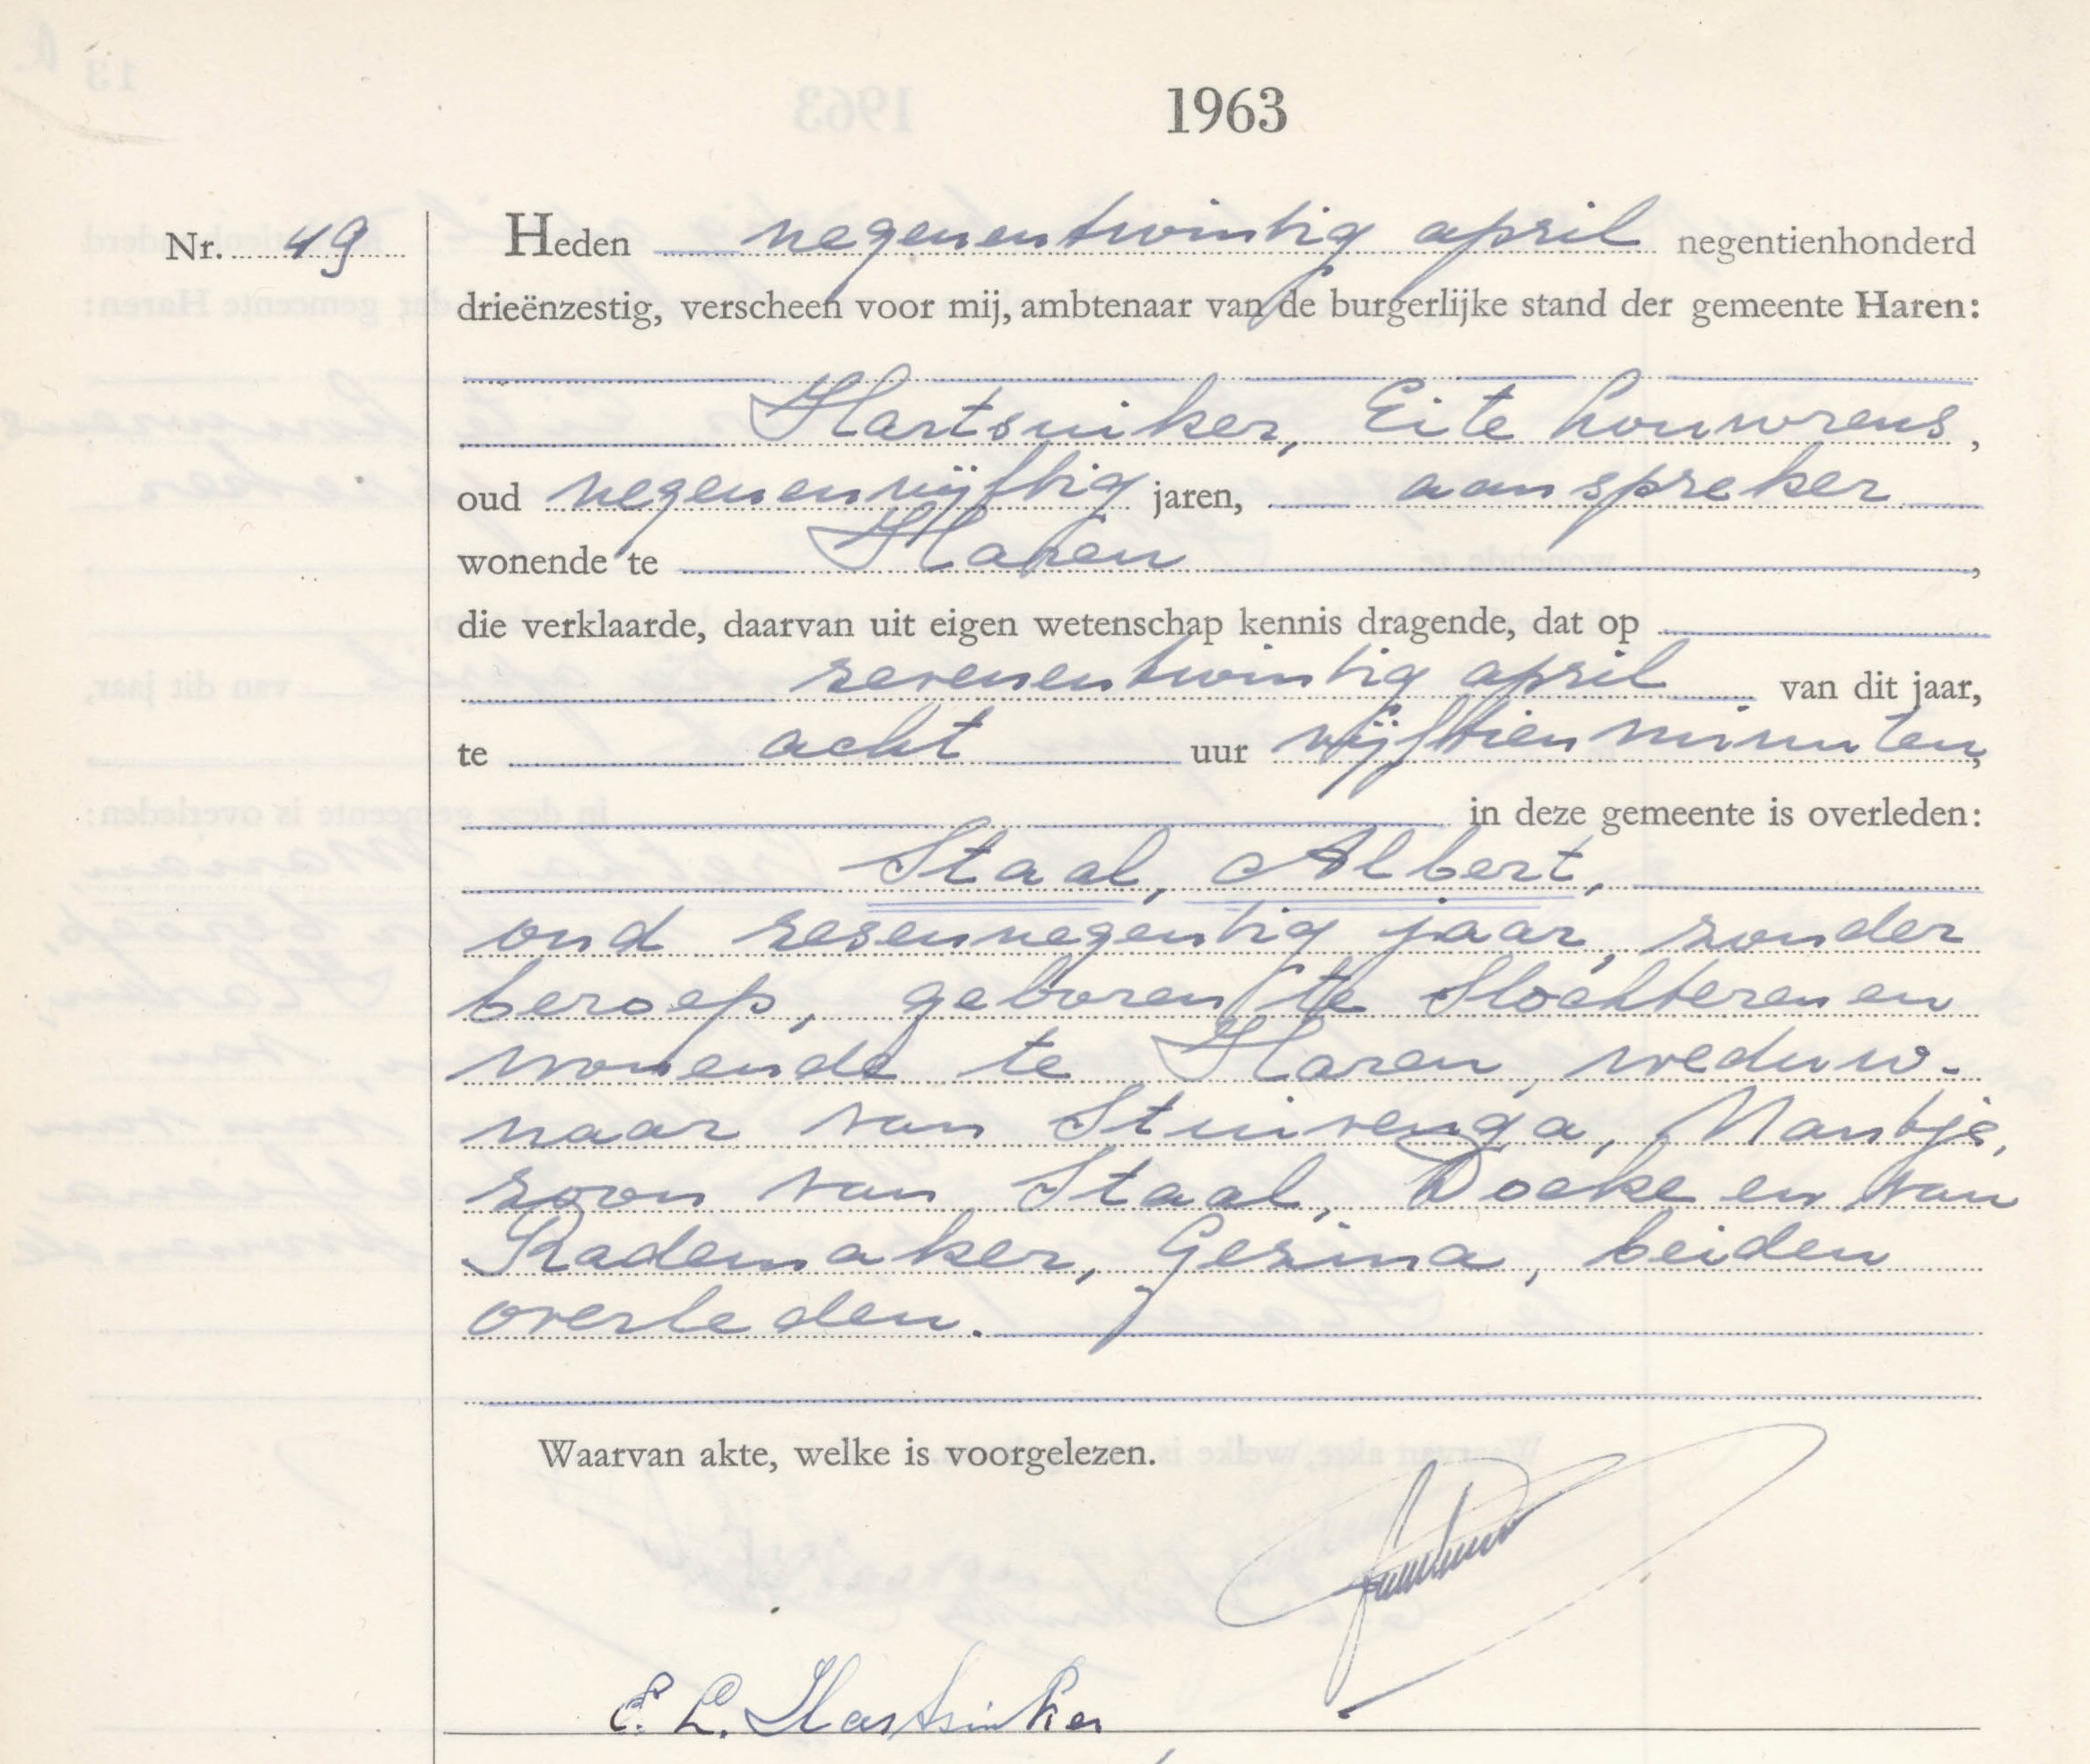 1963
Nr. 49
Heden negenentwintig april negentienhonderd
drieënzestig, verscheen voor mij, ambtenaar van de burgerlijke stand der gemeente Haren:
Hartsuiker, Eite Louwrens,
oud negenenvijftig jaren, aanspreker
wonende te Haren,
die verklaarde, daarvan uit eigen wetenschap kennis dragende, dat op
zevenentwintig april van dit jaar,
te acht uur vijftien minuten,
in deze gemeente is overleden:
Staal, Albert,
oud zesennegentig jaar, zonder
beroep, geboren te Slochteren en
wonende te Haren, weduw-
naar van Stuivenga, Mantje,
zoon van Staal, Doeke en van
Rademaker, Gezina, beiden
overleden.
Waarvan akte, welke is voorgelezen.
E. L. Hartsuiker